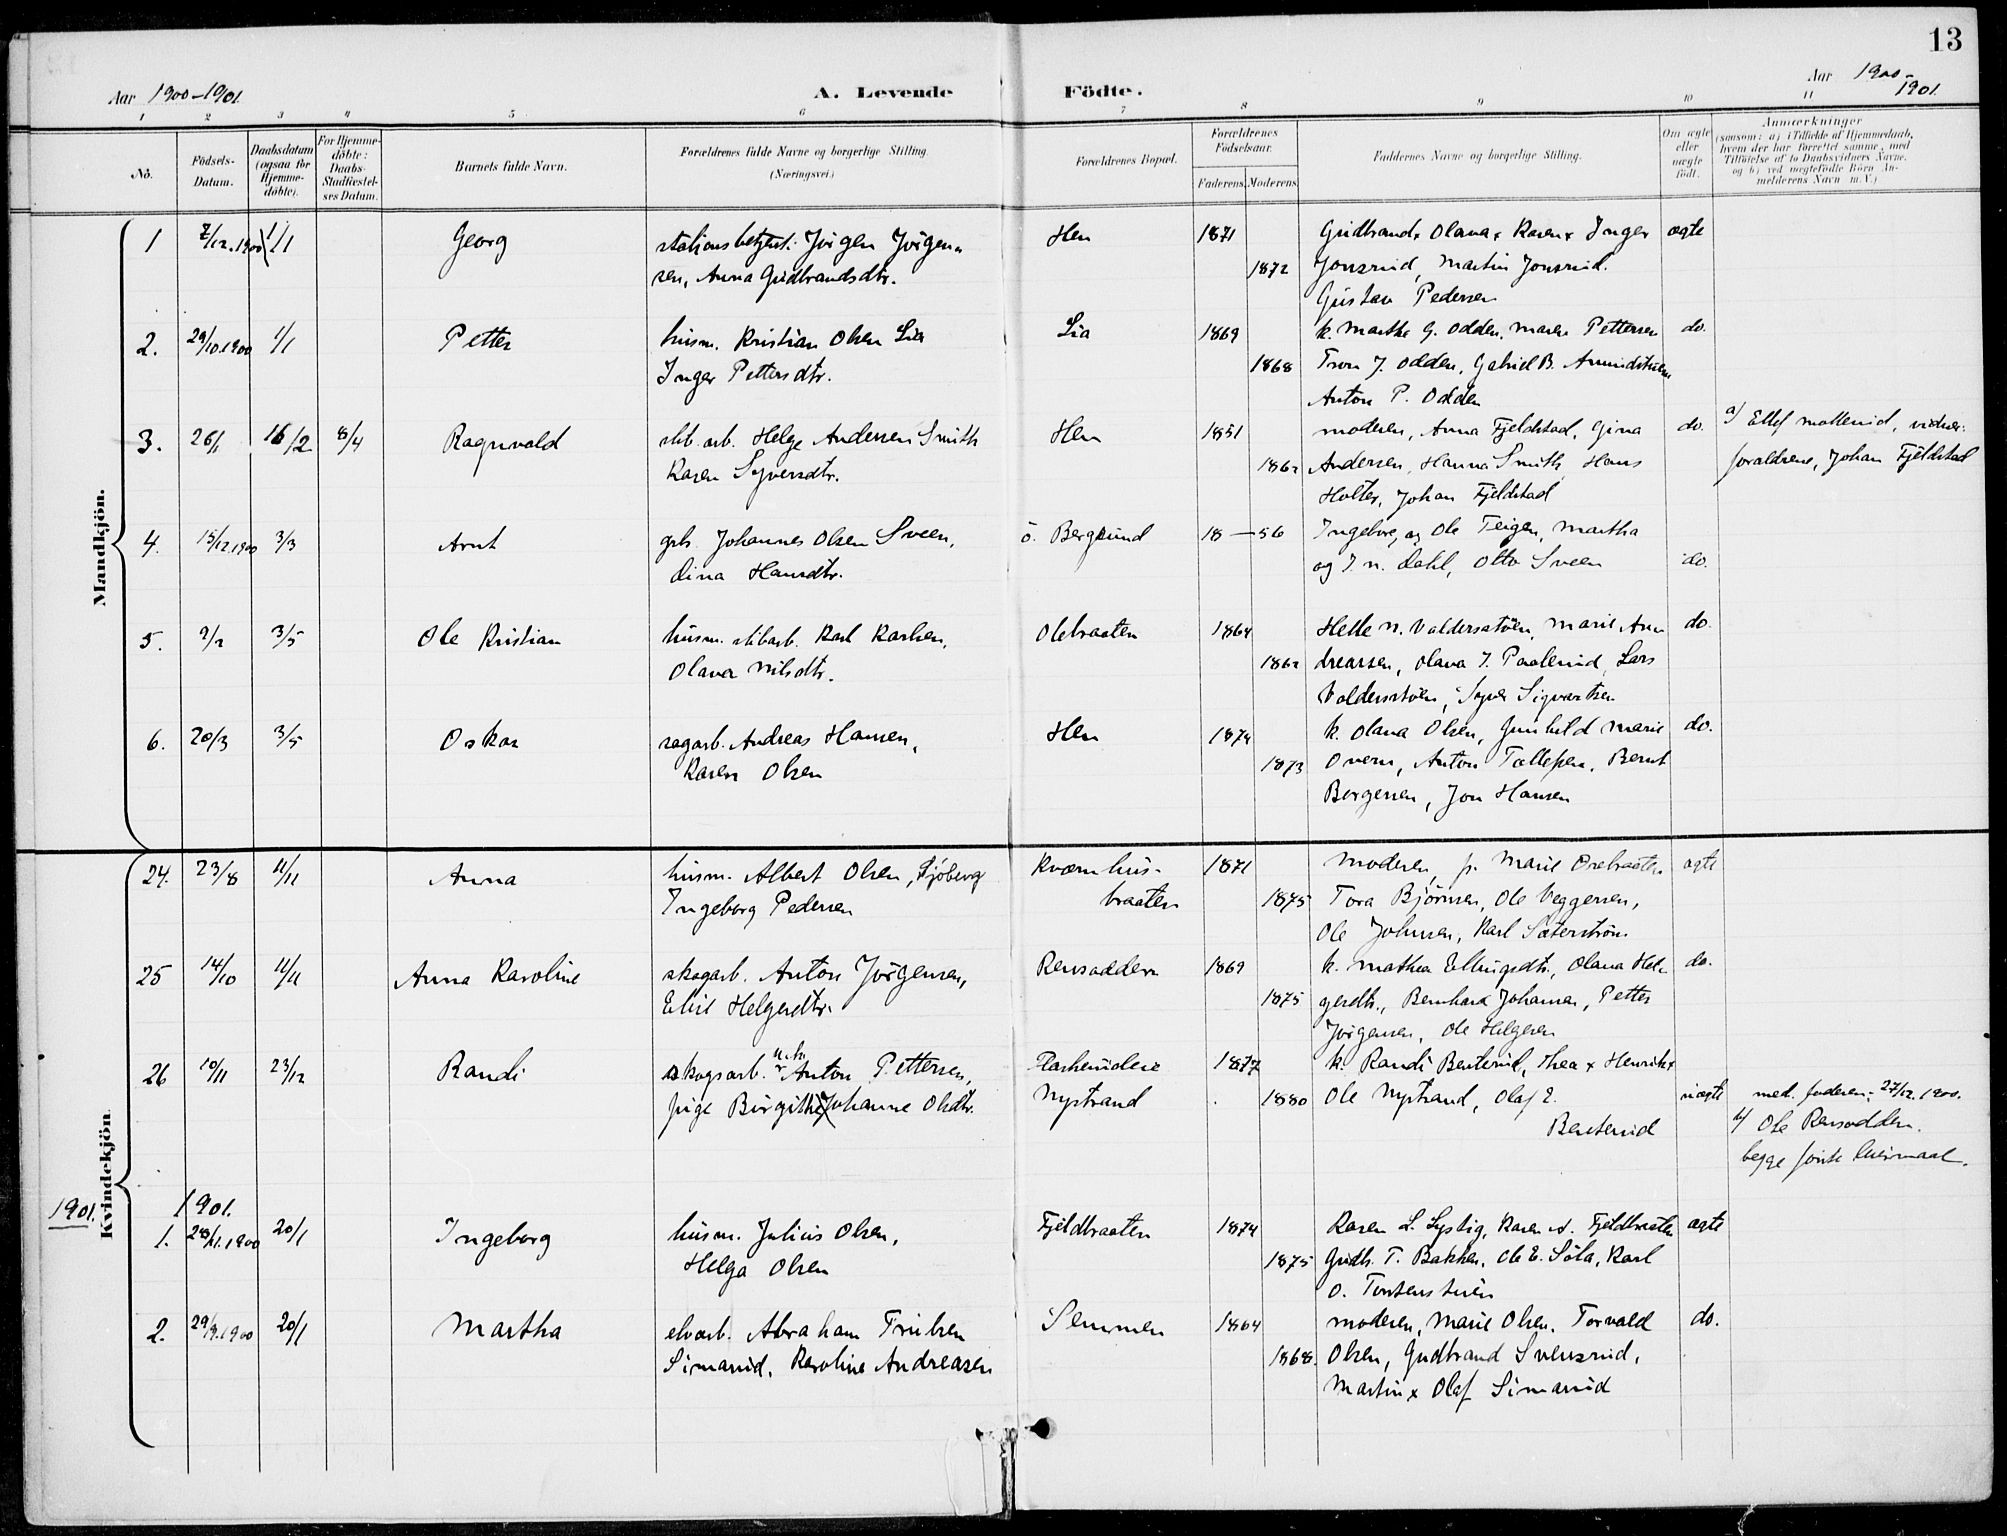 13
Aar 1900-1901.
A. Levende Födte.
Aar 1900-1901.
1 2 3 4 5 6 7 8 9 10 11
No.
Födsels-Datum.
Daabsdatum (ogsaa for Hjemme-döbte).
For Hjemme-döbte: Daabs-Stadfæstel-ses Datum.
Barnets fulde Navn.
Forældrenes fulde Navne og borgerlige Stilling. (Næringsvei.)
Forældrenes Bopæl.
Forældrenes Födselsaar.
Faderens. Moderens.
Faddernes Navne og borgerlige Stilling.
Om ægte eller uægte født.
Anmærkninger
(saasom: a) i Tilfælde af Hjemmedaab, hvem der har forrettet samme, med Tilföielse af to Daabsvidners Navne, og b) ved uægtefödte Börn An-melderens Navn m. V.)
Mandkjön.
1 7/12.1900 1/1 Georg stationsbetjent: Jörgen Jörgen- Hen 1871 Gudbrand, Olava, Karen, Inger ægte
sen, Anna Gudbrandsdtr. 1872 Jonsrud, Martin Jonsrud.
Gustav Pedersen
2. 29/10.1900 1/1 Petter husm. Kristian Olsen Lia Lia 1869 k. Marthe G. Odden, Maren Pettersen do.
Inger Pettersdtr. 1868 Tron J. Odden, Gabriel B.
Anton P. Odden
3. 26/1 16/2 8/4 Ragnvald slib.arb. Helge Andersen Smith Hen 1851 moderen, Anna Fjeldstad, Gina do. a)
Karen Syversdtr. 1862 Andersen, Hanna Smith, Hans forældrene, Johan Fjeldstad
Holter, Johan Fjeldstad
4. 15/12.1900 3/3 Arnt grb. Johannes Olsen Sveen, ö. Bergsund 18 — 56 Ingeborg og Ole Teigen, Martha
Dina Hansdtr. og J. N. Dahl, Otto Sveen do.
5. 9/2 3/5 Ole Kristian husm. slibarb. Karl Karlsen, Olebraaten 1864 Helle N. Valdersstöen, Marie An- do.
Olava Nilsdtr. 1862 dreassen, Olava J. Paalerud, Lars
Valdersstöen, Syver Sigvartsen
6. 20/3 3/5 Oskar sagarb. Andreas Hansen, Hen 1874 k. Olava Olsen, Gunhild Marie do.
Karen Olsen 1873 Overn, Anton Tollefsen, Bernt
Borgersen, Jon Hansen
Kvindekjön.
24. 23/8 11/11 Anna husm. Albert Olsen, Sjöberg Kværnhus- 1871 Moderen, p. Marie ægte
Ingeborg Pedersen braaten 1875 Tora Björnsen, Ole Veggersen,
Ole Johnsen, Karl Säterström
25 14/10 11/11 Anna Karoline skogarb. Anton Jörgensen, Rensodden 1869 k. Mathea Ellingsdtr., Olava Hel- do.
Elise Helgesdtr. 1875 gesdtr., Bernhard Johansen, Petter
Jörgensen, Ole Helgesen
26 10/11 23/12 Randi skogsarb. u.k. Anton Pettersen, 1877 k. Randi Benterud, Thea x Henrik x
pige Birgithe Johanne Olsdtr. Nystrand 1880 Ole Nystrand, Olaf E. uægte med. faderen: 27/12.1900.
Benterud b) Ole Rensodden.
begge förste leiermaal.
1901.
1901.
1. 28/11.1900 20/1 Ingeborg husm. Julius Olsen, Fjeldbraaten 1874 Karen L. Lystig, Karen A. Fjeldbraaten ægte
Helga Olsen 1875 Gudb. T. Bakken, Ole E. Söla, Karl
O. Torstenstuen
2. 29/9.1900 20/1 Martha elvarb. Abraham Trulsen Semmen 1864 moderen, Marie Olsen, Torvald do.
Simarud, Karoline Andreasen 1868. Olsen, Gudbrand Svensrud,
Martin x Olaf Simarud